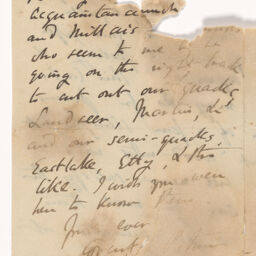 acquaintance
and Millais
who seem to me to be
going on the right track
to cut out our quacks,
Landseer, Martin, &c
and our semi-quacks,
Eastlake, Etty, & the
like. I wish you were
here to know them.
ever